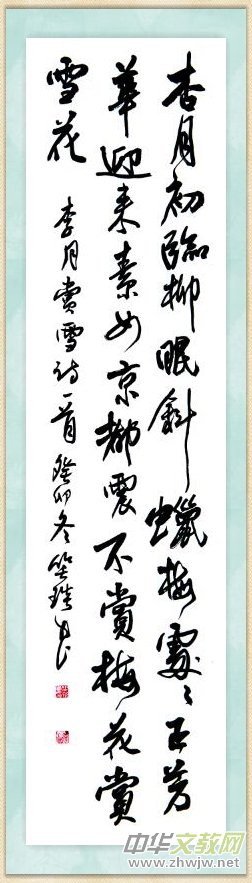 杏月初临柳眠斜蜡梅处处正芳
华迎来素女京都震不赏梅花赏
雪花 李月赏雪诗一首 癸卯冬
中华文教网
www.zhwjw.net